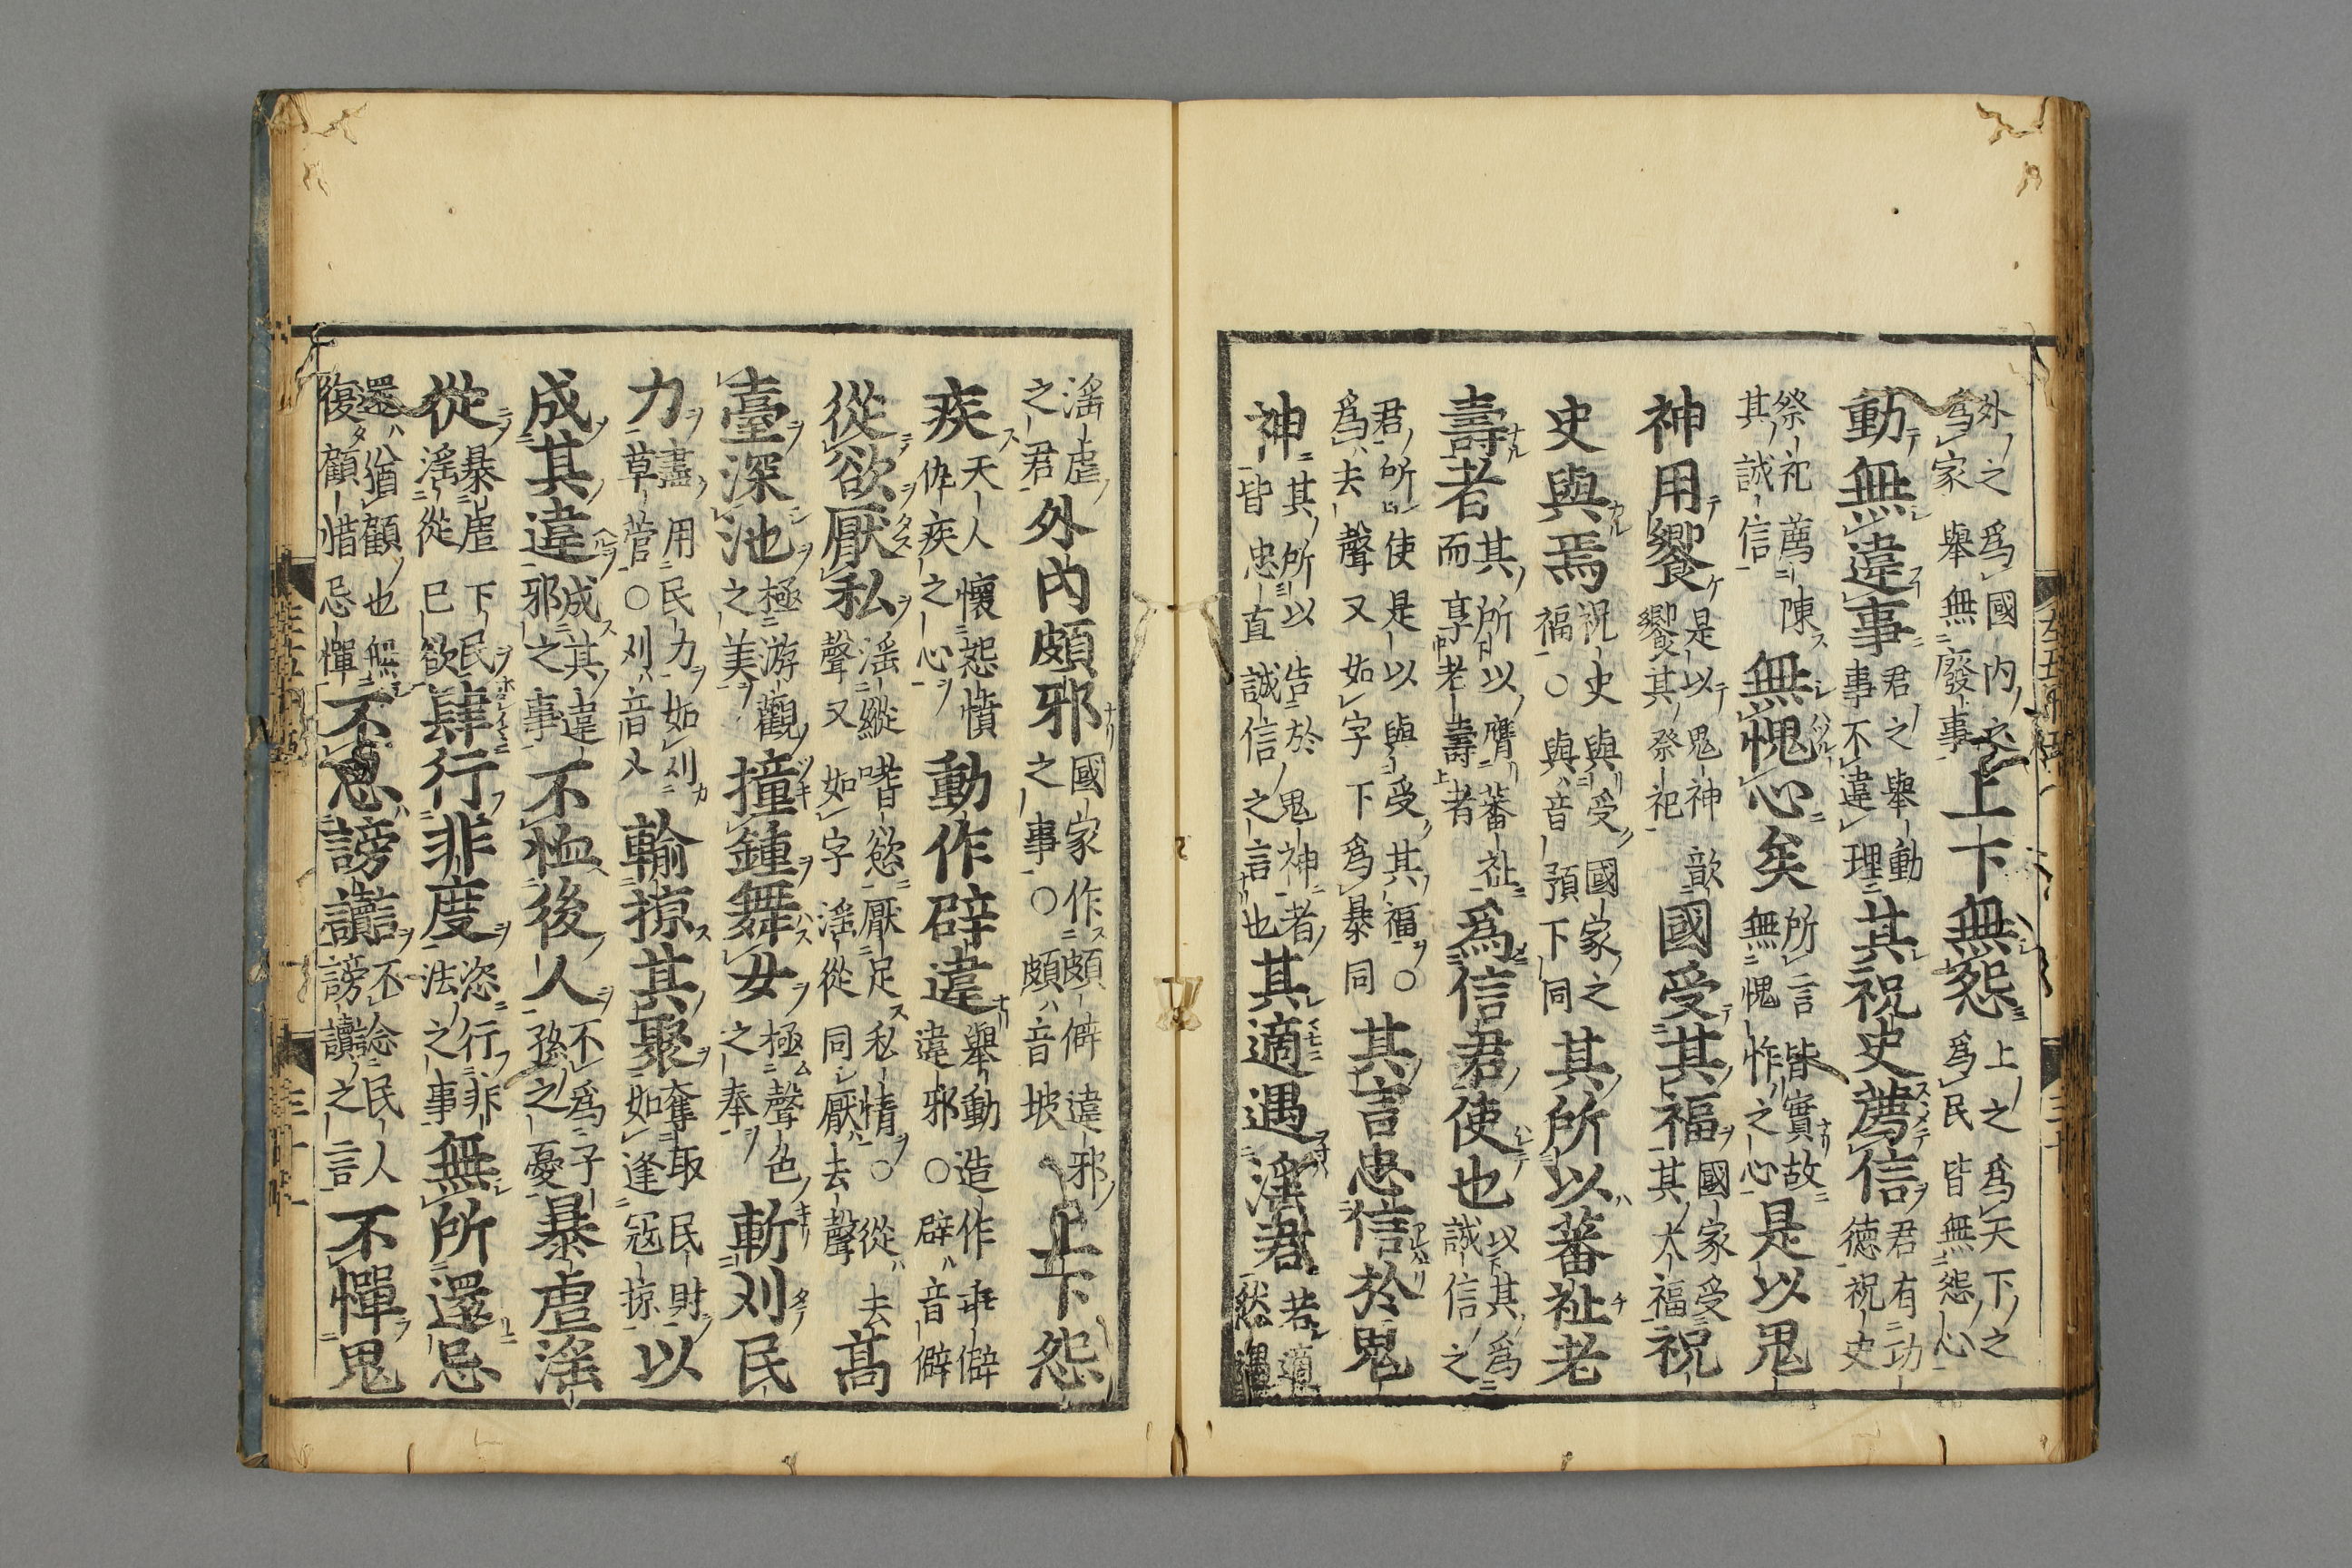 外之爲國内之
爲家舉無廢事
上下無怨
上之爲天下之
爲民皆無怨心
動無違事
君之舉動
事不違理
其祝史薦信
君有功
德祝史
祭祀薦陳
其誠信
無愧心矣
所言皆實故
無愧怍之心
是以鬼
神用饗
是以鬼神歆
饗其祭祀
國受其福
國家受
其大福
祝
史與焉
祝史與受國家之
福○與音預下同
其所以蕃祉老
壽者
其所以膺蕃祉
而享老壽者
爲信君使也
以其爲
誠信之
君所使是以與受其福○
爲去聲又如字下爲暴同
其言忠信於鬼
神
其所以告於鬼神者
皆忠直誠信之言也
其適遇淫君
若適
然遇
淫虐
之君
外内頗邪
國家作頗僻違邪
之事○頗音坡
上下怨
疾
天人懷怨憤
仇疾之心
動作辟違
舉動造作乖僻
違邪○辟音僻
從欲厭私
淫縱嗜慾厭足私情○從去
聲又如字淫從同厭去聲
高
臺深池
極游觀
之美
撞鐘舞女
極聲色
之奉
斬刈民
力
盡用民力如刈
草菅○刈音乂
輸掠其聚
奪取民財
如逢寇掠
以
成其違
成其違
邪之事
不恤後人
不爲子
孫之憂
暴虐淫
從
暴虐下民
淫從已欲
肆行非度
恣行非
法之事
無所還忌
還猶顧也無
復顧惜忌憚
不思謗讟
不念民人
謗讟之言
不憚鬼